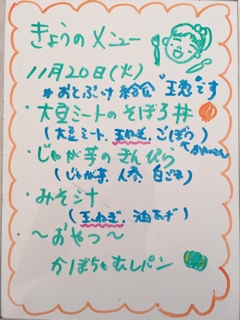 きょうのメニュー
11月20日(火)
*おとぷけ給食 "玉葱"です
・大豆ミートのそぼろ丼
(大豆ミート、玉ねぎ、ごぼう)
・じゃが芋のきんぴら
(じゃが芋、人参、白ごま)
・みそ汁
(玉ねぎ、油あげ)
〜おやつ〜
かぼちゃむしパン